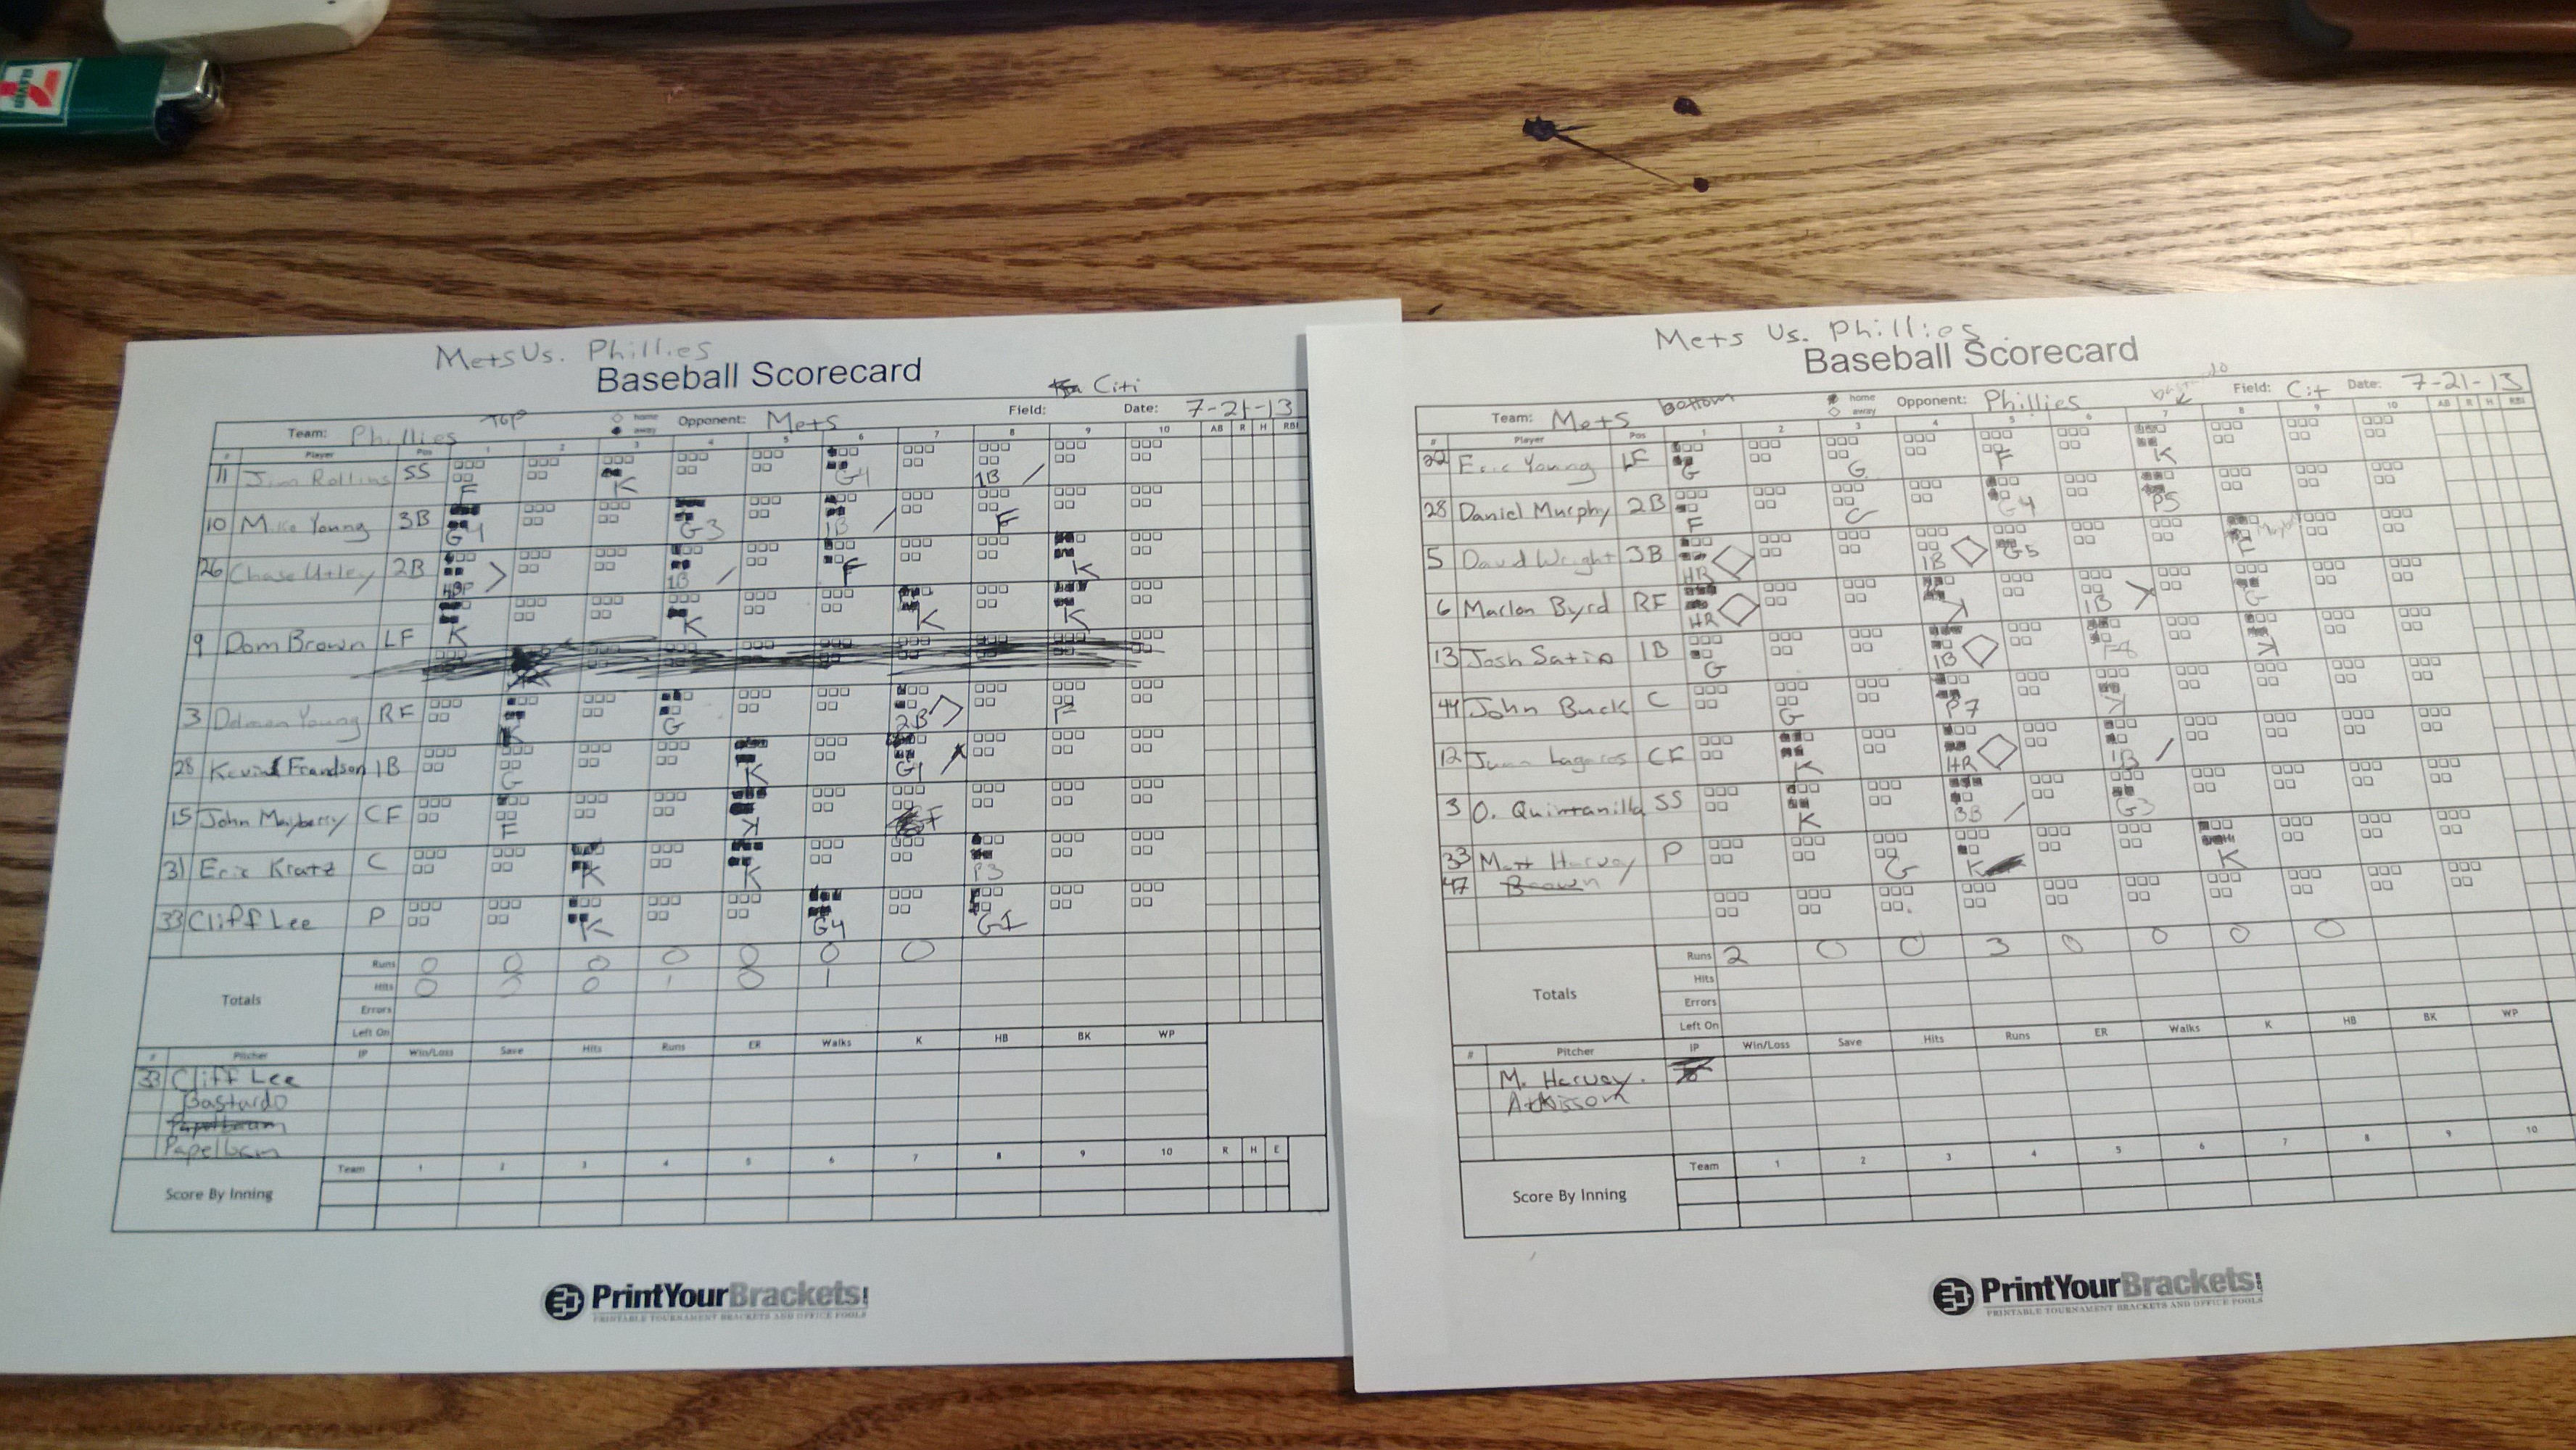 Mets Us. Phillies
Baseball Scorecard
Citi
Team: Phillies TOP
home
away
Opponent: Mets
Field:
Date: 7-21-13
# Player Pos 1 2 3 4 5 6 7 8 9 10 AB R H RBI
11 Jim Rollins SS F K G4 1B
10 Mike Young 3B G4 G3 1B F
26 Chase Utley 2B HBP 1B F K
9 Dom Brown LF K K K K
3 Delmon Young RF K G 2B F
28 Kevin Frandson 1B G K G1
15 John Mayberry CF F K F
31 Eric Kratz C K K P3
33 Cliff Lee P K G4 G1
Totals
Runs 0 0 0 0 0 0 0
Hits 0 0 0 1 0 1
Errors
Left On
# Pitcher IP Win/Loss Save Hits Runs ER Walks K HB BK WP
33 Cliff Lee
Bastardo
Papelbam
Score By Inning
Team 1 2 3 4 5 6 7 8 9 10 R H E
PrintYourBrackets!
PRINTABLE TOURNAMENT BRACKETS AND OFFICE POOLS
Mets Us. Phillies
Baseball Scorecard
Team: Mets bottom
home
away
Opponent: Phillies
Field: Cit
Date: 7-21-13
# Player Pos 1 2 3 4 5 6 7 8 9 10 AB R H RBI
22 Eric Young LF G G F K
28 Daniel Murphy 2B F G4 P5
5 David Wright 3B HR 1B G5 F
6 Marlon Byrd RF HR K 1B G
13 Josh Satin 1B G 1B F8 K
44 John Buck C G P7 K
12 Juan Lagaros CF K HR 1B
3 O. Quintanilla SS K BB G3
33 Matt Harvey P G K K
47 Brown
Totals
Runs 2 0 0 3 0 0 0 0
Hits
Errors
Left On
# Pitcher IP Win/Loss Save Hits Runs ER Walks K HB BK WP
M. Harvey.
Atkisson
Score By Inning
Team 1 2 3 4 5 6 7 8 9 10
PrintYourBrackets!
PRINTABLE TOURNAMENT BRACKETS AND OFFICE POOLS